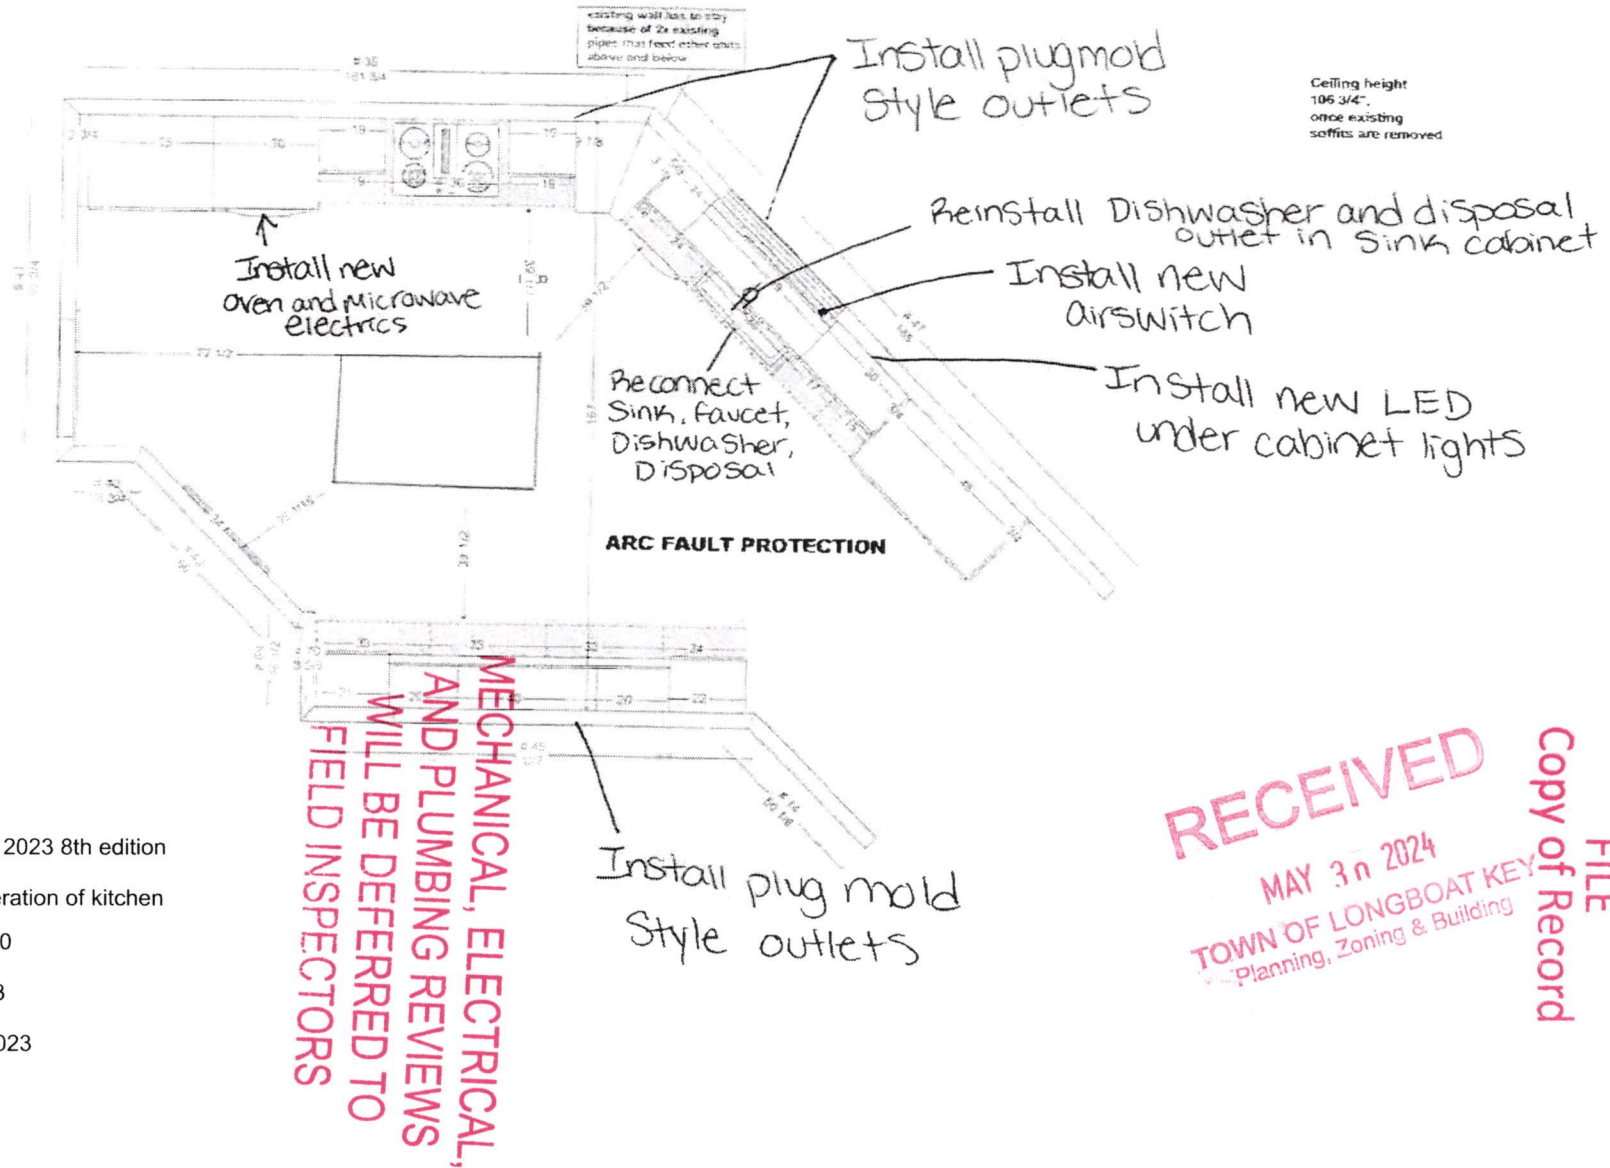 existing wall has to stay
because of 2x existing
pipes that feed other units
above and below.
Install plugmold
Style outlets
Ceiling height
106 3/4",
once existing
soffits are removed
Reinstall Dishwasher and disposal
outlet in Sink cabinet
Install new
airswitch
Install new LED
under cabinet lights
Install new
oven and Microwave
electrics
Reconnect
Sink, faucet,
Dishwasher,
Disposal
ARC FAULT PROTECTION
161 3/4
19
19
9 7/8
19
36
18
77 1/2
167
33
33
24
20
22
Install plug mold
Style outlets
MECHANICAL, ELECTRICAL,
AND PLUMBING REVIEWS
WILL BE DEFERRED TO
FIELD INSPECTORS
2023 8th edition
eration of kitchen
0
3
023
RECEIVED
MAY 30 2024
TOWN OF LONGBOAT KEY
Planning, Zoning & Building
FILE
Copy of Record